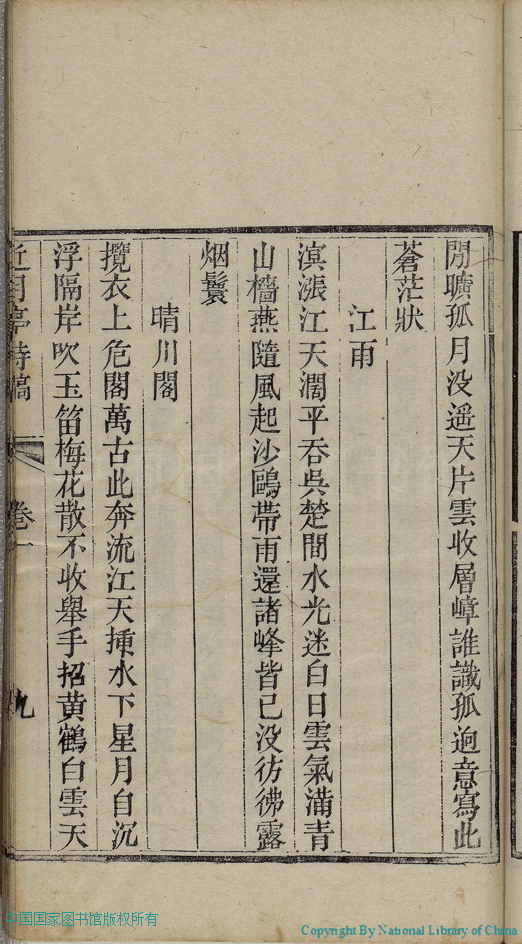 閒曠孤月没遥天片雲收層嶂誰識孤迥意寫此
蒼茫狀
江雨
溟漲江天濶平吞吳楚間水光迷白日雲氣滿青
山檣燕隨風起沙鷗帶雨還諸峰皆已没彷彿露
烟鬟
晴川閣
攬衣上危閣萬古此奔流江天挿水下星月自沉
浮隔岸吹玉笛梅花散不收舉手招黄鶴白雲天
近月亭詩稿 卷一 九
中国国家图书馆版权所有
Copyright By National Library of China